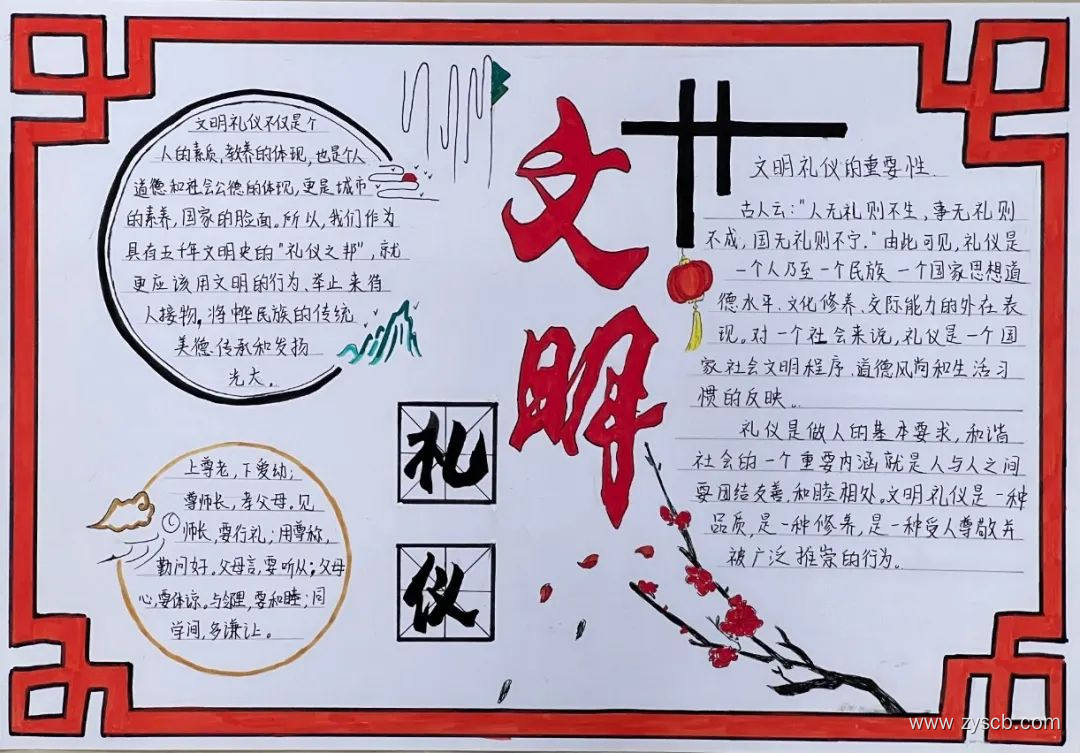 文明礼仪不仅是个
人的素质,教养的体现,也是个人
道德和社会公德的体现,更是城市
的素养,国家的脸面。所以,我们作为
具有五千年文明史的"礼仪之邦",就
更应该用文明的行为、举止来待
人接物,将中华民族的传统
美德传承和发扬
光大。
上尊老,下爱幼;
尊师长,孝父母。见
师长,要行礼;用尊称,
勤问好。父母言,要听从;父母
心,要体谅。与邻里,要和睦;同
学间,多谦让。
文明
礼
仪
文明礼仪的重要性.
古人云:"人无礼则不生,事无礼则
不成,国无礼则不宁."由此可见,礼仪是
一个人乃至一个民族一个国家思想道
德水平、文化修养、交际能力的外在表
现。对一个社会来说,礼仪是一个国
家社会文明程序、道德风尚和生活习
惯的反映。
礼仪是做人的基本要求,和谐
社会的一个重要内涵就是人与人之间
要团结友善,和睦相处。文明礼仪是一种
品质,是一种修养,是一种受人尊敬并
被广泛推崇的行为。
www.zyscb.com